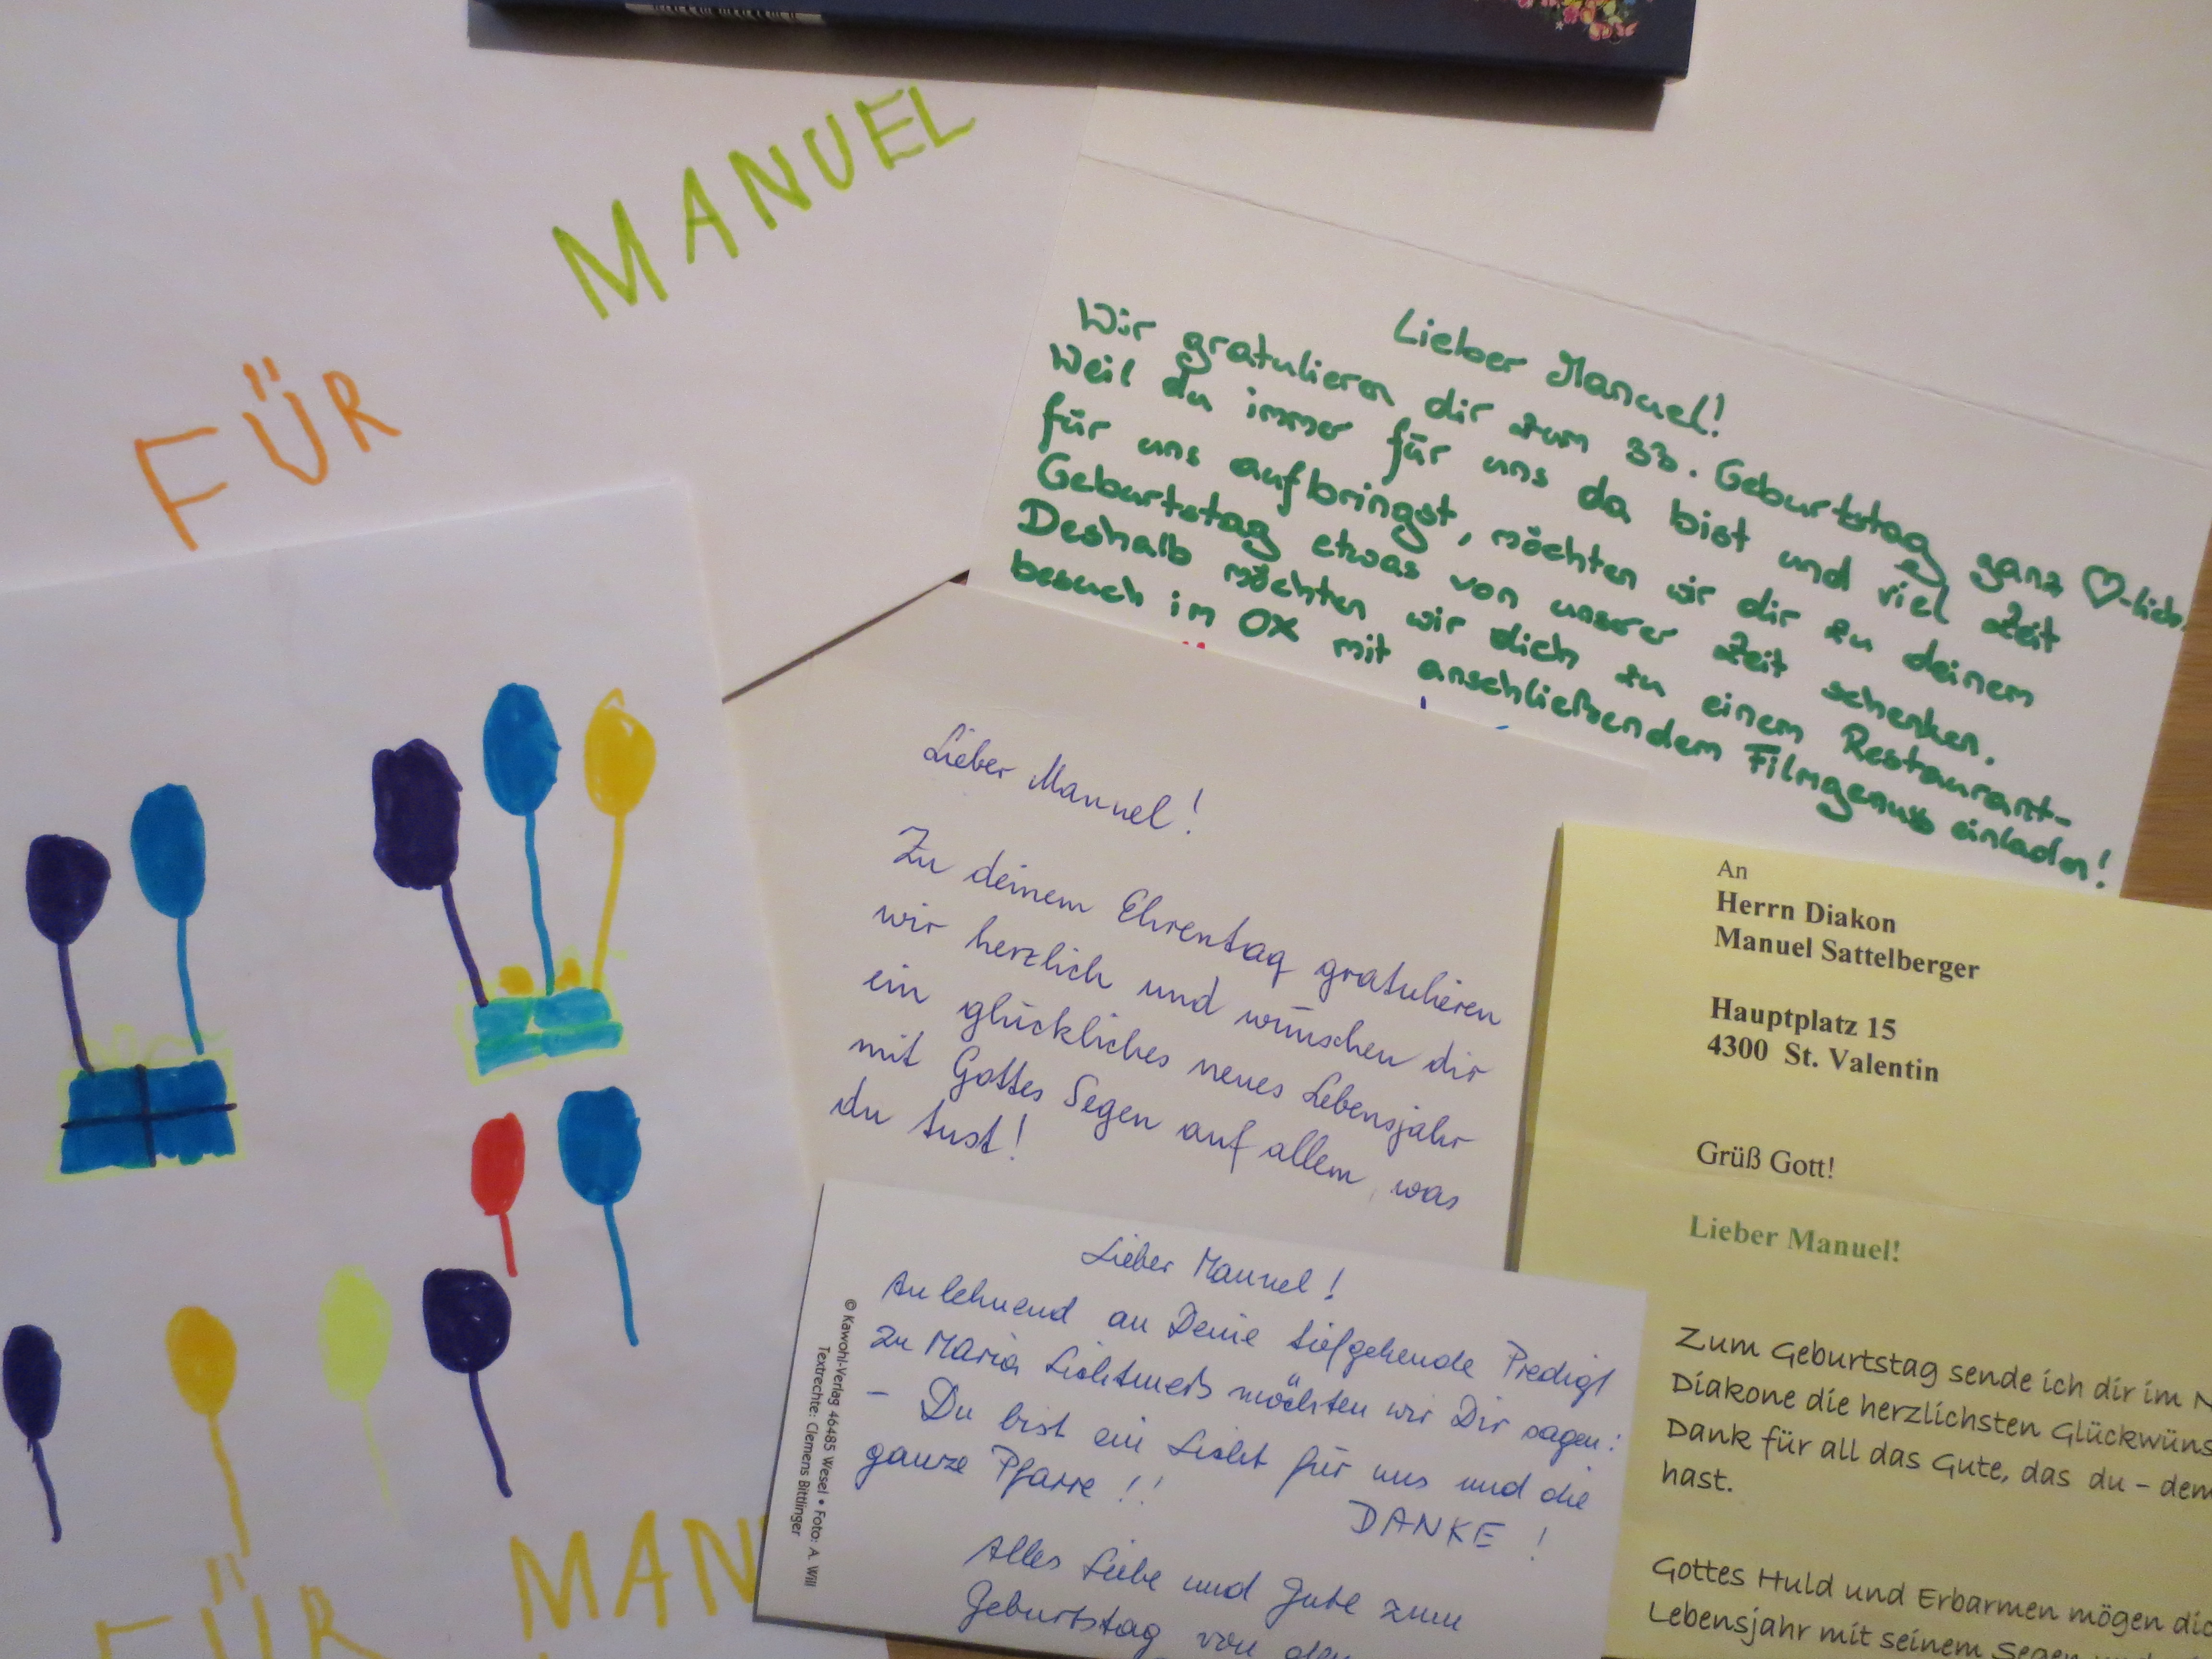 MANUEL
FÜR
Lieber Manuel!
Wir gratulieren dir zum 33. Geburtstag ganz ♡-lich.
Weil du immer für uns da bist und viel Zeit
für uns aufbringst, möchten wir dir zu deinem
Geburtstag etwas von unserer Zeit schenken.
Deshalb möchten wir dich zu einem Restaurant-
besuch im OX mit anschließendem Filmgenuss einladen!
Lieber Manuel!
Zu deinem Ehrentag gratulieren
wir herzlich und wünschen dir
ein glückliches neues Lebensjahr
mit Gottes Segen auf allem, was
du tust!
An
Herrn Diakon
Manuel Sattelberger
Hauptplatz 15
4300 St. Valentin
Grüß Gott!
Lieber Manuel!
Zum Geburtstag sende ich dir im N
Diakone die herzlichsten Glückwüns
Dank für all das Gute, das du – dem
hast.
Gottes Huld und Erbarmen mögen dic
Lebensjahr mit seinem Segen
Lieber Manuel!
Anlehnend an Deine tiefgehende Predigt
zu Maria Lichtmeß möchten wir Dir sagen:
– Du bist ein Licht für uns und die
ganze Pfarre!!
DANKE!
Alles Liebe und Gute zum
Geburtstag von
© Kawohl-Verlag 46485 Wesel • Foto: A. Will
Textrechte: Clemens Bittlinger
FÜR MAN